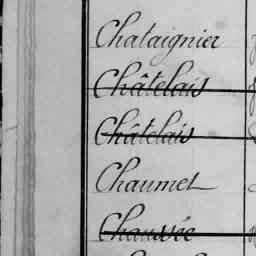 Chataignier
Châtelais
Châtelais
Chaumet
Chaussée